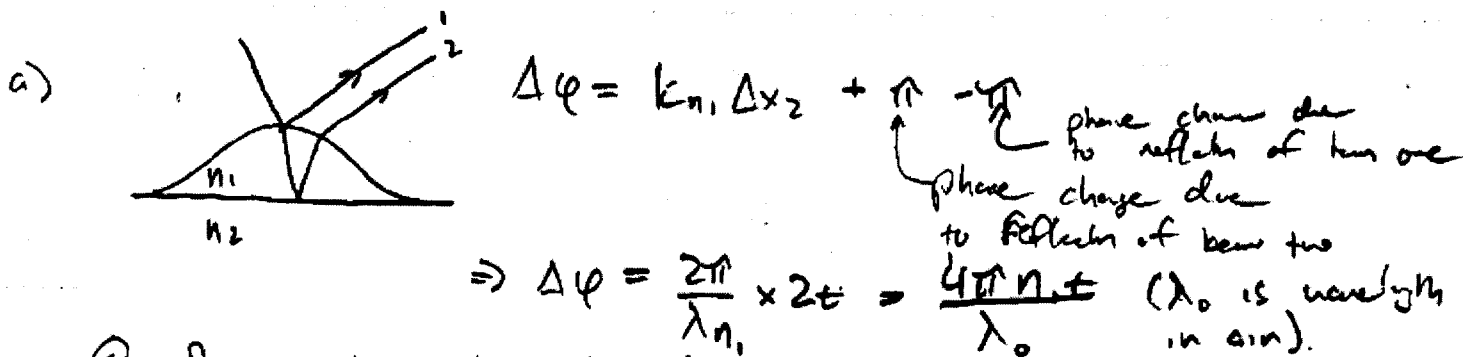 a)
1
2
n₁
n₂
Δφ = kn₁ Δx₂ + π - π
phase change due
to reflection of beam one
phase change due
to reflection of beam two
⇒ Δφ = 2π/λn₁ × 2t = 4πn₁t/λ₀ (λ₀ is wavelength
in air).